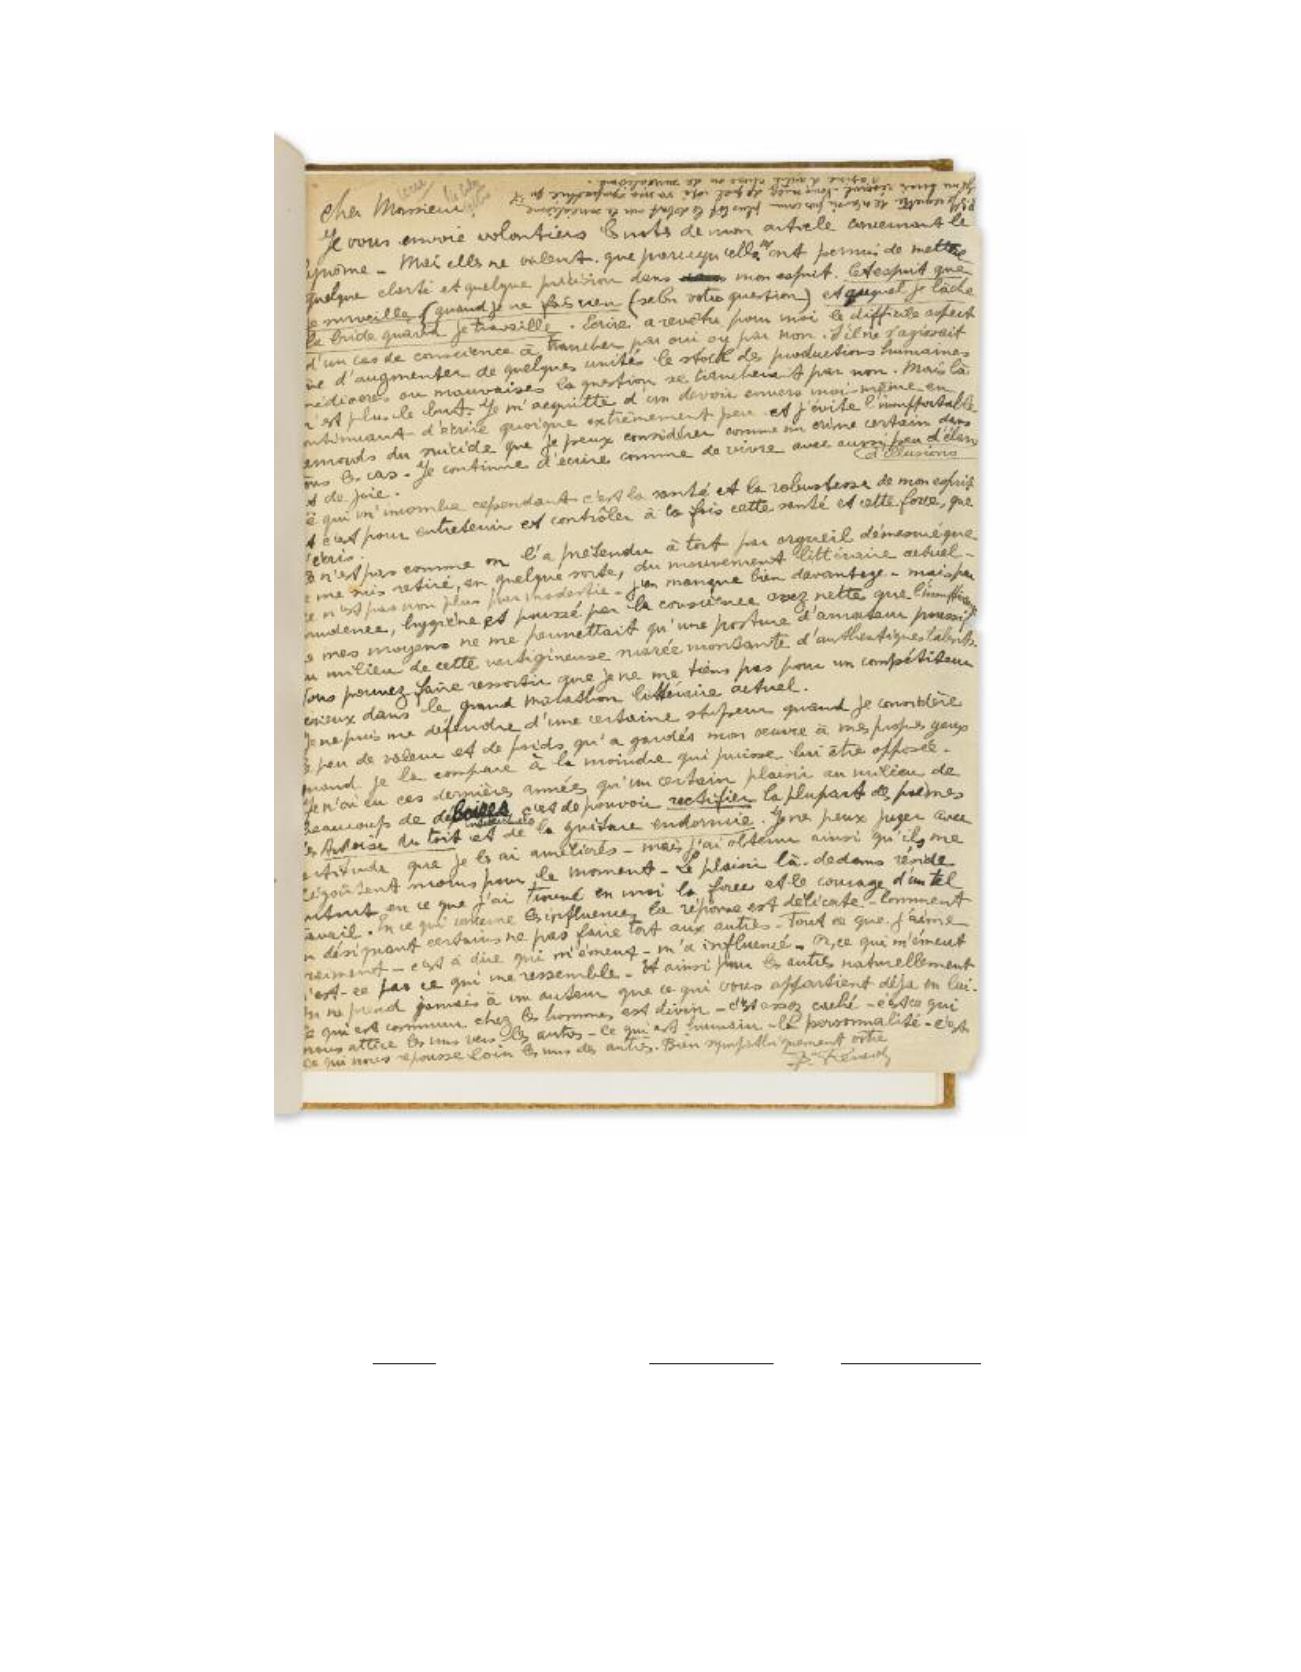 Cher Monsieur
Je vous envoie volontiers de mon article concernant le
poème - Mais elles ne valent que parce qu'elles m'ont permis de mettre
quelque clarté et quelque précision dans mon esprit. Cet esprit que
je surveille (quand je ne fais rien (selon votre question) et auquel je lâche
la bride quand je travaille. Écrire a revêtu pour moi le difficile aspect
d'un cas de conscience à trancher par oui ou par non. S'il ne s'agissait
que d'augmenter de quelques unités le stock des productions humaines
médiocres ou mauvaises la question se trancherait par non. Mais là
n'est plus le but. Je m'acquitte d'un devoir envers moi-même en
continuant d'écrire quoique extrêmement peu et j'évite l'insupportable
remords du suicide que je peux considérer comme un crime certain dans
tous les cas. Je continue d'écrire comme de vivre avec aussi peu d'élan
d'illusions
et de joie.
Ce qui m'incombe cependant c'est la santé et la robustesse de mon esprit
et c'est pour entretenir et contrôler à la fois cette santé et cette force, que
j'écris.
Ce n'est pas comme on l'a prétendu à tort par orgueil démesuré que
je me suis retiré, en quelque sorte, du mouvement littéraire actuel -
ce n'est pas non plus par modestie - j'en manque bien davantage - mais par
prudence, hygiène et poussé par la conscience assez nette que l'insuffisance
de mes moyens ne me permettait qu'une posture d'amateur poussif
au milieu de cette vertigineuse marée montante d'authentiques talents.
Vous pouvez faire ressortir que je ne me tiens pas pour un compétiteur
sérieux dans le grand marathon littéraire actuel.
Je ne puis me défendre d'une certaine stupeur quand je considère
le peu de valeur et de poids qu'a gardés mon œuvre à mes propres yeux
quand je la compare à la moindre qui puisse lui être opposée.
Je n'ai eu ces dernières années qu'un certain plaisir au milieu de
beaucoup de déboires c'est de pouvoir rectifier la plupart des poèmes
des Ardoises du toit et de la guitare endormie. Je ne peux juger avec
certitude que je les ai améliorés - mais j'ai obtenu ainsi qu'ils me
dégoûtent moins pour le moment - Le plaisir là-dedans réside
surtout en ce que j'ai trouvé en moi la force et le courage d'un tel
travail. En ce qui concerne les influences la réponse est délicate - Comment
en désignant certains ne pas faire tort aux autres - Tout ce que j'aime
vraiment - c'est à dire qui m'émeut - m'a influencé. Or, ce qui m'émeut
n'est-ce pas ce qui me ressemble - Et ainsi pour les autres naturellement
On ne prend jamais à un auteur que ce qui vous appartient déjà en lui.
Ce qui est commun chez les hommes est divin - c'est assez caché - c'est ce qui
nous attire les uns vers les autres - Ce qui est humain - la personnalité - c'est
ce qui nous repousse loin les uns des autres. Bien sympathiquement votre
P. Reverdy